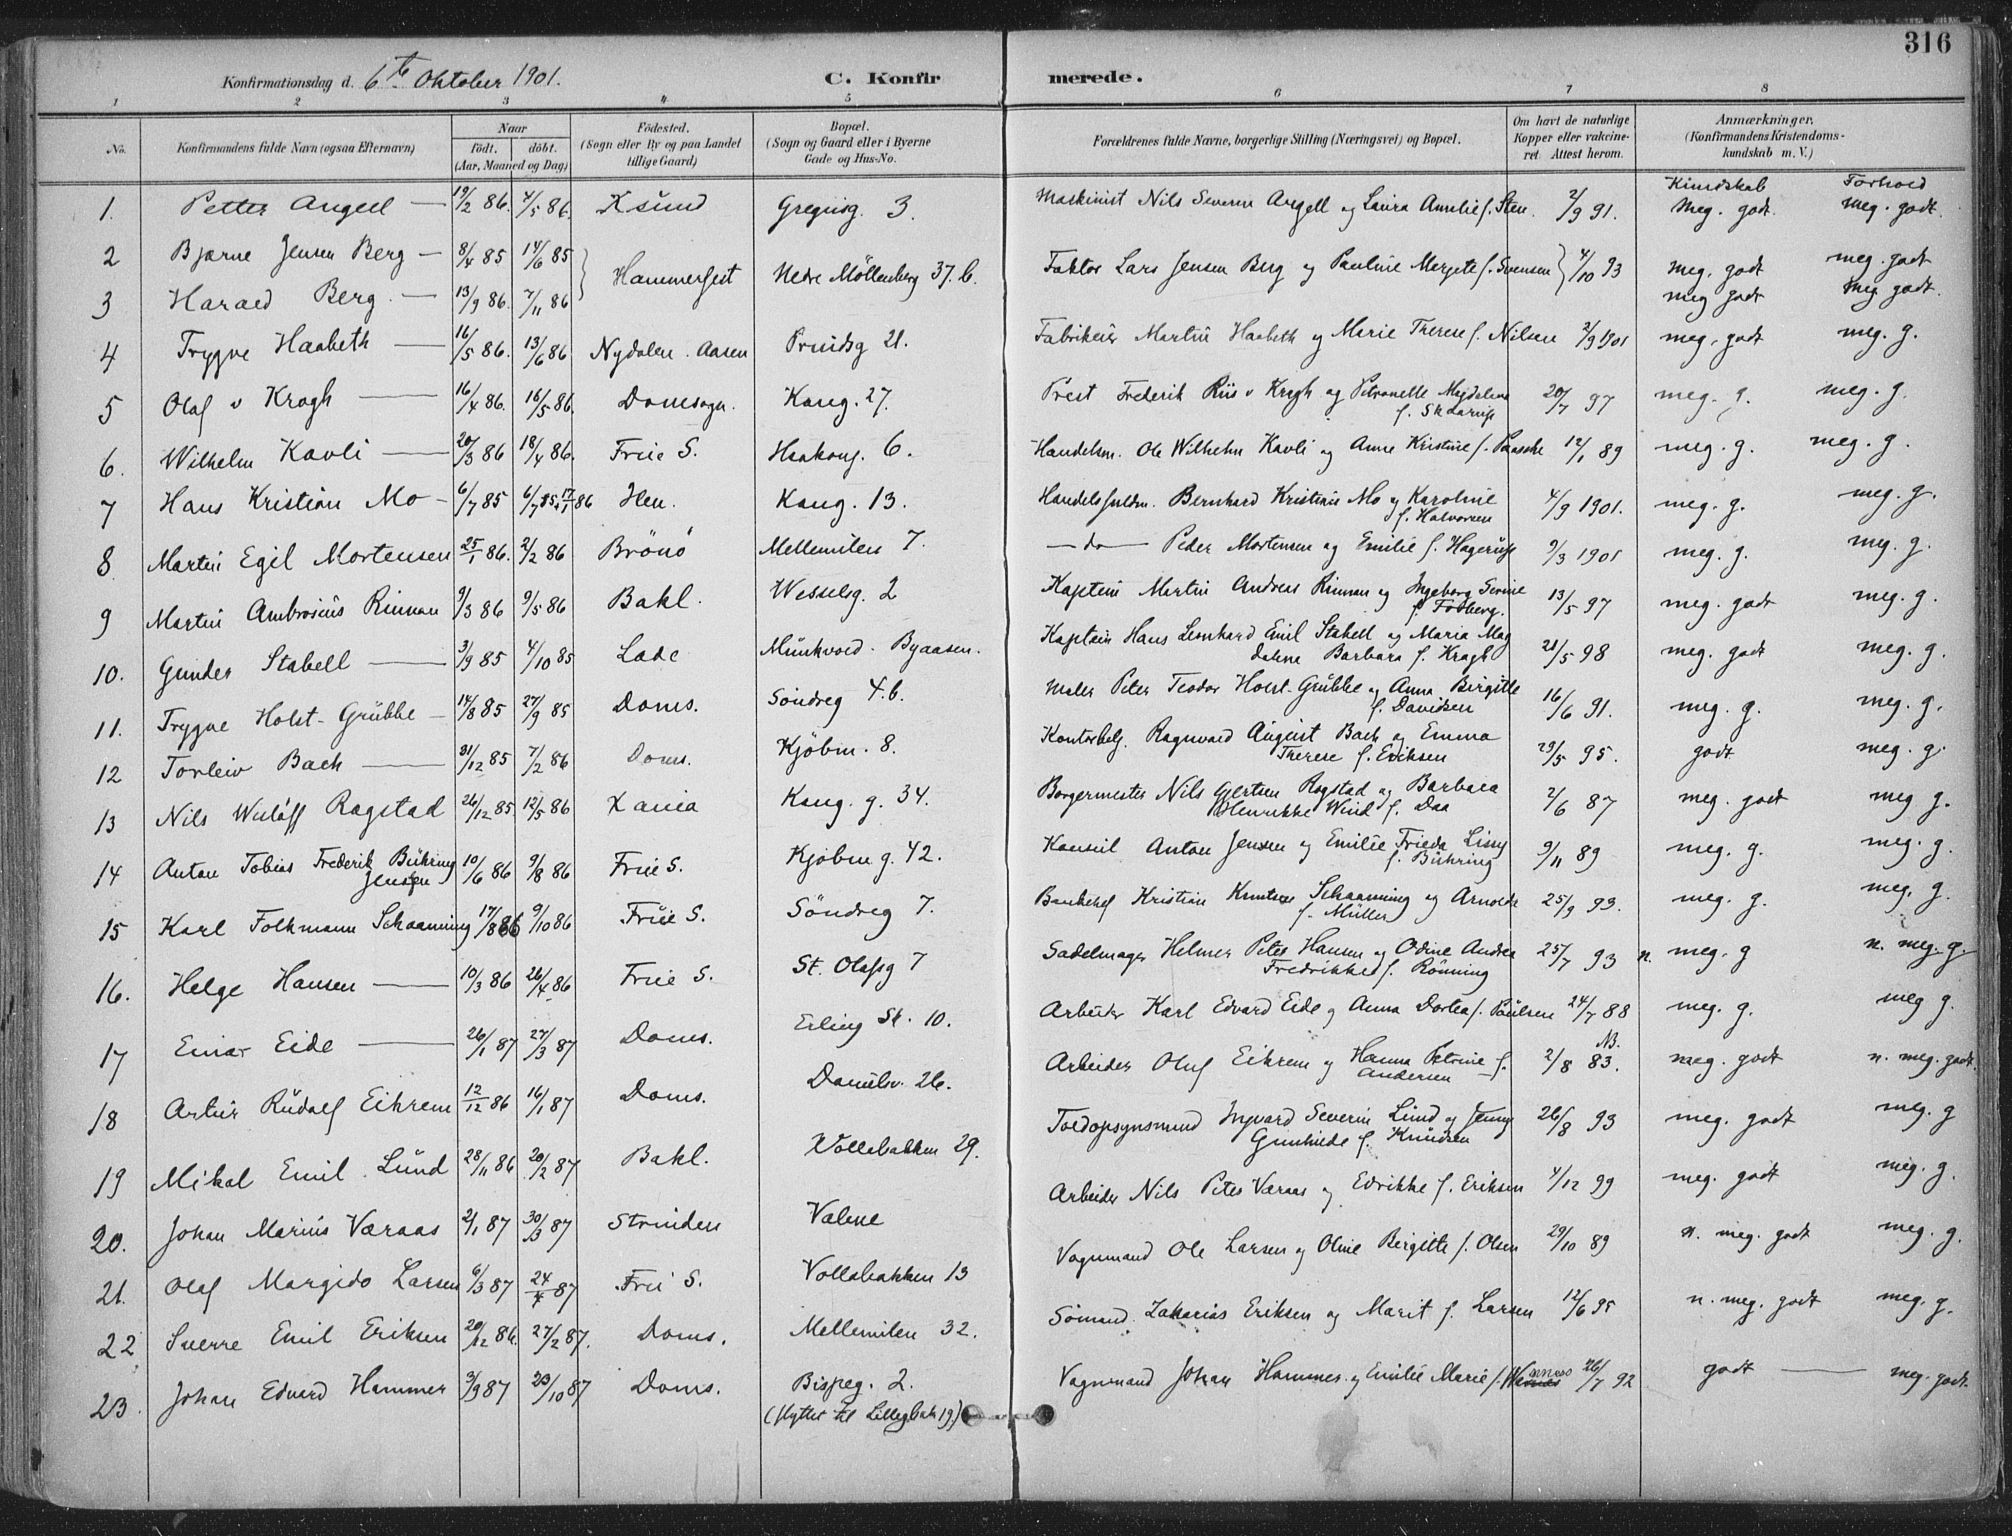 316
Konfirmationsdag d. 6te Oktober 1901. C. Konfir merede.
1 2 3 4 5 6 7 8
No. Konfirmandens fulde Navn (ogsaa Efternavn) Naar født. døbt. (Aar, Maaned og Dag) Fødested. (Sogn eller By og paa Landet tillige Gaard) Bopæl. (Sogn og Gaard eller i Byerne Gade og Hus-No. Forældrenes fulde Navne, borgerlige Stilling (Næringsvei) og Bopæl. Om havt de naturlige Kopper eller vakcineret. Attest herom. Anmærkninger. (Konfirmandens Kristendomskundskab m. V.)
Kundskab Forhold
1. Petter Angell 19/2 86. 4/5 86. Ksund Gregusg. 3. Maskinist Nils Severin Angell og Laura Amelie f. Sten. 2/9 91. Meg. godt. meg. godt.
2 Bjarne Jensen Berg 8/4 85 14/6 85 Hammerfest Nedre Möllenberg 37. b. Faktor Lars Jensen Berg og Pauline Mergete f. Svensen 4/10 93 meg. godt meg. godt
3 Harald Berg 13/9 86. 7/11 86 meg godt meg godt.
4 Trygve Haabeth 16/5 86. 13/6 86 Nydalen. Aasen Prindsg 21. Fabrikeier Martin Haabeth og Marie Therese f. Nilsen 2/9 1901 meg. godt meg. g.
5 Olaf v Krogh 16/4 86. 16/5 86. Domsogn. Kong. 27. Prest Frederik Riis v Krogh og Petronelle Magdalene f. Sklarup 20/7 97 meg. g. meg. g.
6. Wilhelm Kavli 20/3 86 18/4 86. Frue S. Haakong. 6. Handelsm. Ole Wilhelm Kavli og Anne Kristine f. Paasche 12/1 89 meg. g. meg. g.
7 Hans Kristian Mo 6/7 85 6/7 85. 17/1 86 Hen. Kong. 13. Handelsfuldm. Bernhard Kristian Mo og Karoline f. Halvorsen 4/9 1901. meg. g. meg. g.
8 Martin Egil Mortensen 25/1 86. 2/2 86 Brönö Mellemilen 7. do Peder Mortensen og Emilie f. Hagerup 9/3 1901 meg. g. meg. g.
9 Martin Ambrosius Rinnan 9/3 86 9/5 86 Bakl. Wesselsg. 2 Kaptein Martin Andreas Rinnan og Ingeborg Serine f. Forberg. 13/5 97 meg. godt meg. g.
10. Gunder Stabell 3/9 85 4/10 85 Lade Munkvold. Byaasen. Kaptein Hans Leonhard Emil Stabell og Maria Magdalene Barbara f. Kragh 21/5 98 meg. godt meg. g.
11. Trygve Holst-Grubbe 14/8 85 27/9 85 Doms. Söndreg 4.b. Maler Peter Teodor Holst-Grubbe og Anna Birgitte f. Davidsen 16/6 91. meg. g. meg. g.
12 Torleiv Bach 31/12 85 7/2 86 Doms. Kjöbm. 8. Kontorbetj. Ragnvald August Bach og Emma Therese f. Eriksen 23/5 95. godt meg. g.
13 Nils Wulöff Rogstad 26/12 85. 12/5 86 Xania Kong. g. 34. Borgermester Nils Gjertsen Rogstad og Barbara Henrikke Wind f. Daa 2/6 87 meg. godt meg g.
14 Anton Tobias Frederik Bühring Jensen 10/6 86 9/8 86 Frue S. Kjöbm g. 42. Konsul Anton Jensen og Emilie Frieda Lissy f. Bühring 9/11 89 meg. g. meg. g.
15 Karl Folkmann Schaanning 17/8 86 9/10 86 Frue S. Söndreg 7. Bankchef Kristian Knutsen Schaanning og Arnolde f. Müller 25/9 93. meg. g. meg. g.
16. Helge Hansen 10/3 86 26/4 86 Frue S. St. Olafsg 7 Sadelmager Helmer Peter Hansen og Odine Andrea Fredrikke f. Rønning 25/7 93 n. meg. g n. meg. g.
17 Einar Eide 26/1 87 27/3 87 Doms. Erling Sk. 10. Arbeider Karl Edvard Eide og Anna Dortea f. Paulsen 24/7 88 meg. g. meg g.
18 Artur Rudolf Eikrem 12/12 86 16/1 87 Doms. Danielsv. 26. Arbeider Oluf Eikrem og Hanna Petrine f. Andersen 2/8 83. NB. meg. godt n. meg. godt.
19 Mikal Emil Lund 28/11 86 20/2 87 Bakl. Vollabakken 29. Toldopsynsmand Ingvard Severin Lund og Jenny Gunhilde f. Knudsen 26/8 93 meg. godt meg. g
20. Johan Marius Væraas 2/1 87 30/3 87 Strinden Valene Arbeider Nils Peter Væraas og Edrikke f. Eriksen 4/12 99 meg. godt meg. g.
21. Olaf Margido Larsen 6/3 87 24/4 87 Frue S. Vollabakken 13 Vognmand Ole Larsen og Oline Birgitte f. Olsen 29/10 89 n. meg. godt meg. g.
22 Sverre Emil Eriksen 20/12 86. 27/2 87. Doms. Mellemilen 32. Sömand Zakarias Eriksen og Marit f. Larsen 12/6 95 n. meg. godt meg. g.
23. Johan Edvard Hammer 3/9 87 23/10 87 Doms. Bispeg. 2. Vognmand Johan Hammer og Emilie Marie f. 26/7 92 godt meg. godt.
(flyttet til Lillegbak 19)